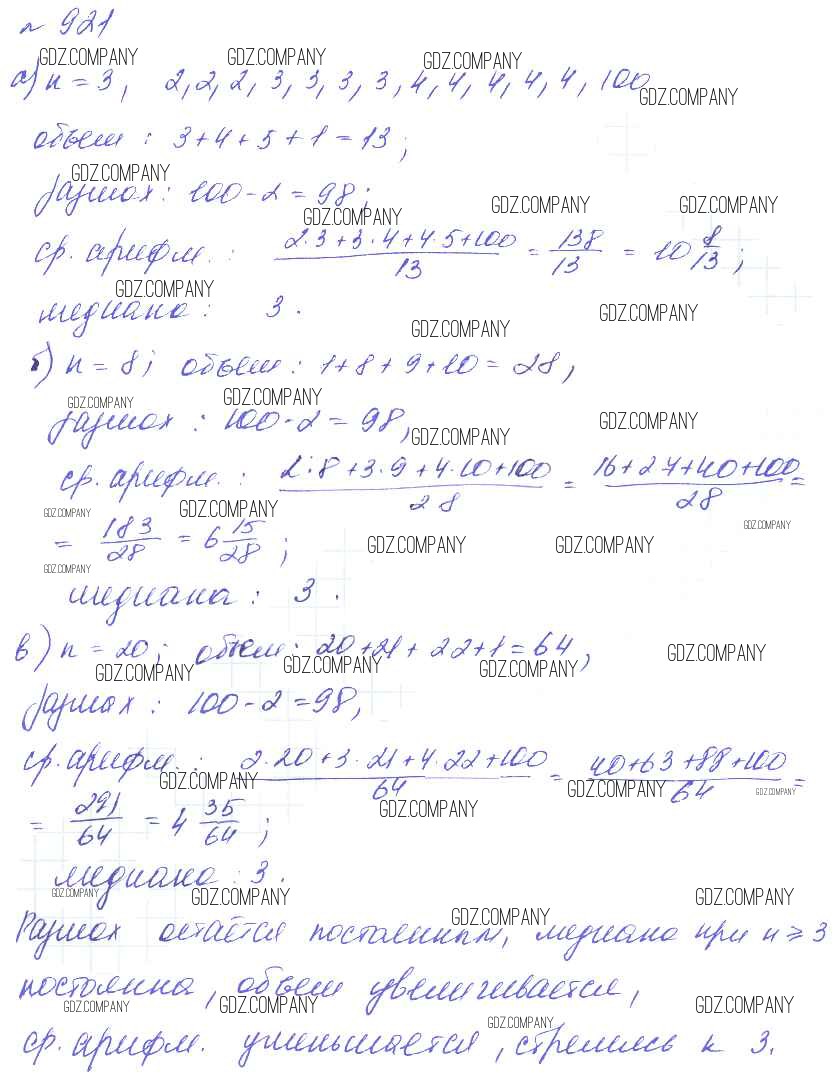 № 921
GDZ.COMPANY GDZ.COMPANY GDZ.COMPANY
а) n = 3, 2, 2, 2, 3, 3, 3, 3, 4, 4, 4, 4, 4, 100
GDZ.COMPANY
объем : 3+4+5+1=13;
GDZ.COMPANY
размах: 100-2=98;
GDZ.COMPANY GDZ.COMPANY GDZ.COMPANY
ср. арифм. : (2·3+3·4+4·5+100)/13 = 138/13 = 10 8/13;
GDZ.COMPANY
медиана : 3.
GDZ.COMPANY GDZ.COMPANY
б) n = 8; объем : 1+8+9+10=28,
GDZ.COMPANY GDZ.COMPANY
размах : 100-2=98,
GDZ.COMPANY GDZ.COMPANY
ср. арифм. : (2·8+3·9+4·10+100)/28 = (16+27+40+100)/28 =
GDZ.COMPANY GDZ.COMPANY GDZ.COMPANY
= 183/28 = 6 15/28;
GDZ.COMPANY GDZ.COMPANY
GDZ.COMPANY
медиана : 3.
в) n = 20; объем: 20+21+22+1=64,
GDZ.COMPANY GDZ.COMPANY GDZ.COMPANY GDZ.COMPANY
размах : 100-2=98,
ср. арифм. : (2·20+3·21+4·22+100)/64 = (40+63+88+100)/64 =
GDZ.COMPANY GDZ.COMPANY GDZ.COMPANY GDZ.COMPANY
= 291/64 = 4 35/64;
медиана : 3.
GDZ.COMPANY GDZ.COMPANY GDZ.COMPANY
GDZ.COMPANY
Размах остаётся постоянным, медиана при n ≥ 3
постоянна, объем увеличивается,
GDZ.COMPANY GDZ.COMPANY GDZ.COMPANY
GDZ.COMPANY
ср. арифм. уменьшается, стремясь к 3.